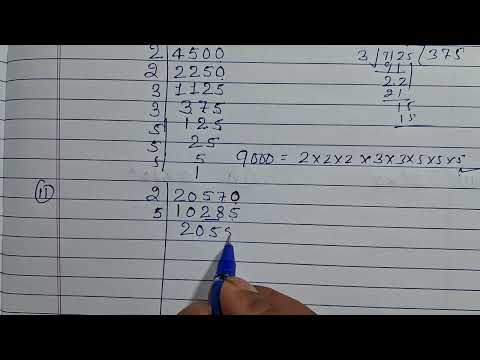 2 | 4500
2 | 2250
3 | 1125
3 | 375
5 | 125
5 | 25
5 | 5
1
3 ) 1125 ( 375
21
22
21
15
15
9000 = 2×2×2×3×3×5×5×5
11
2 | 20570
5 | 10285
205